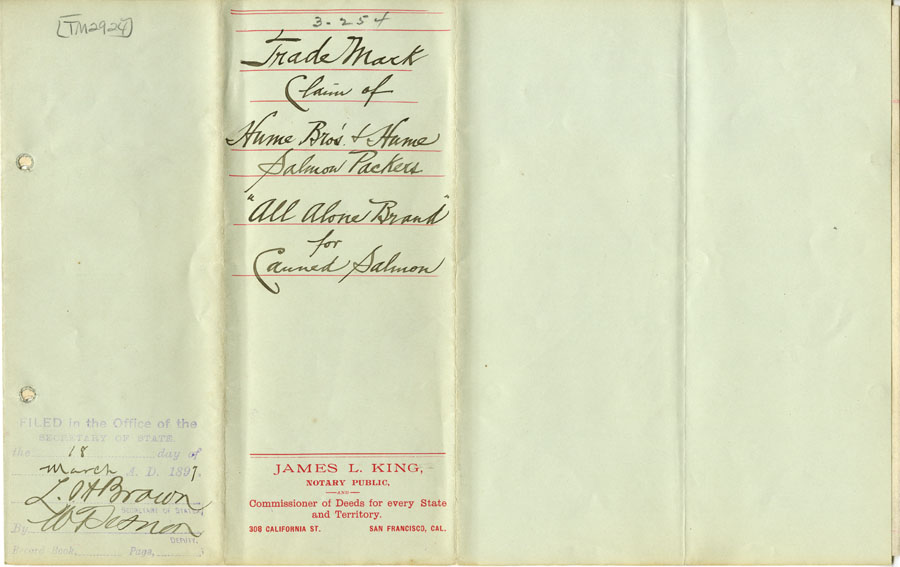 [TM2924]
3-254
Trade Mark
Claim of
Hume Bro's. & Hume
Salmon Packers
"All Alone Brand"
for
Canned Salmon
FILED in the Office of the
SECRETARY OF STATE
the 18 day of
March A. D. 1897.
L. H. Brown
SECRETARY OF STATE
By
DEPUTY.
Record Book, Page, 3
JAMES L. KING,
NOTARY PUBLIC,
—AND—
Commissioner of Deeds for every State
and Territory.
306 CALIFORNIA ST. SAN FRANCISCO, CAL.